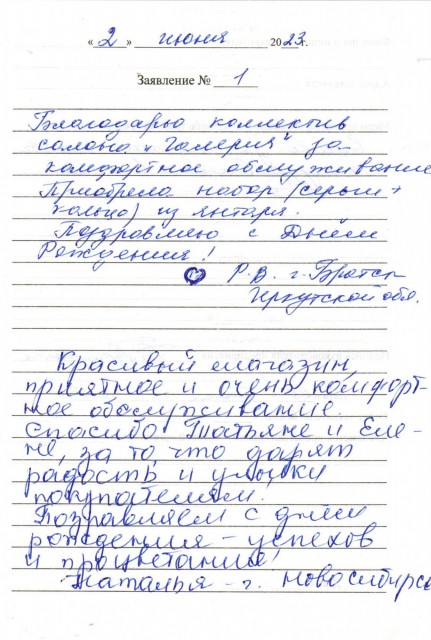 « 2 » июня 2023 г.
Заявление № 1
Благодарю коллектив
салона „Галерея" за
комфортное обслуживание
Приобрела набор (серьги +
кольцо) из янтаря.
Поздравляю с Днём
Рождения!
Р.В. г. Братск
Иркутской обл.
Красивый магазин,
приятное и очень комфорт-
ное обслуживание.
Спасибо Татьяне и Еле-
не, за то что дарят
радость и улыбки
покупателям!
Поздравляем с днём
рождения - успехов
и процветания!
Наталья - г. Новосибирск